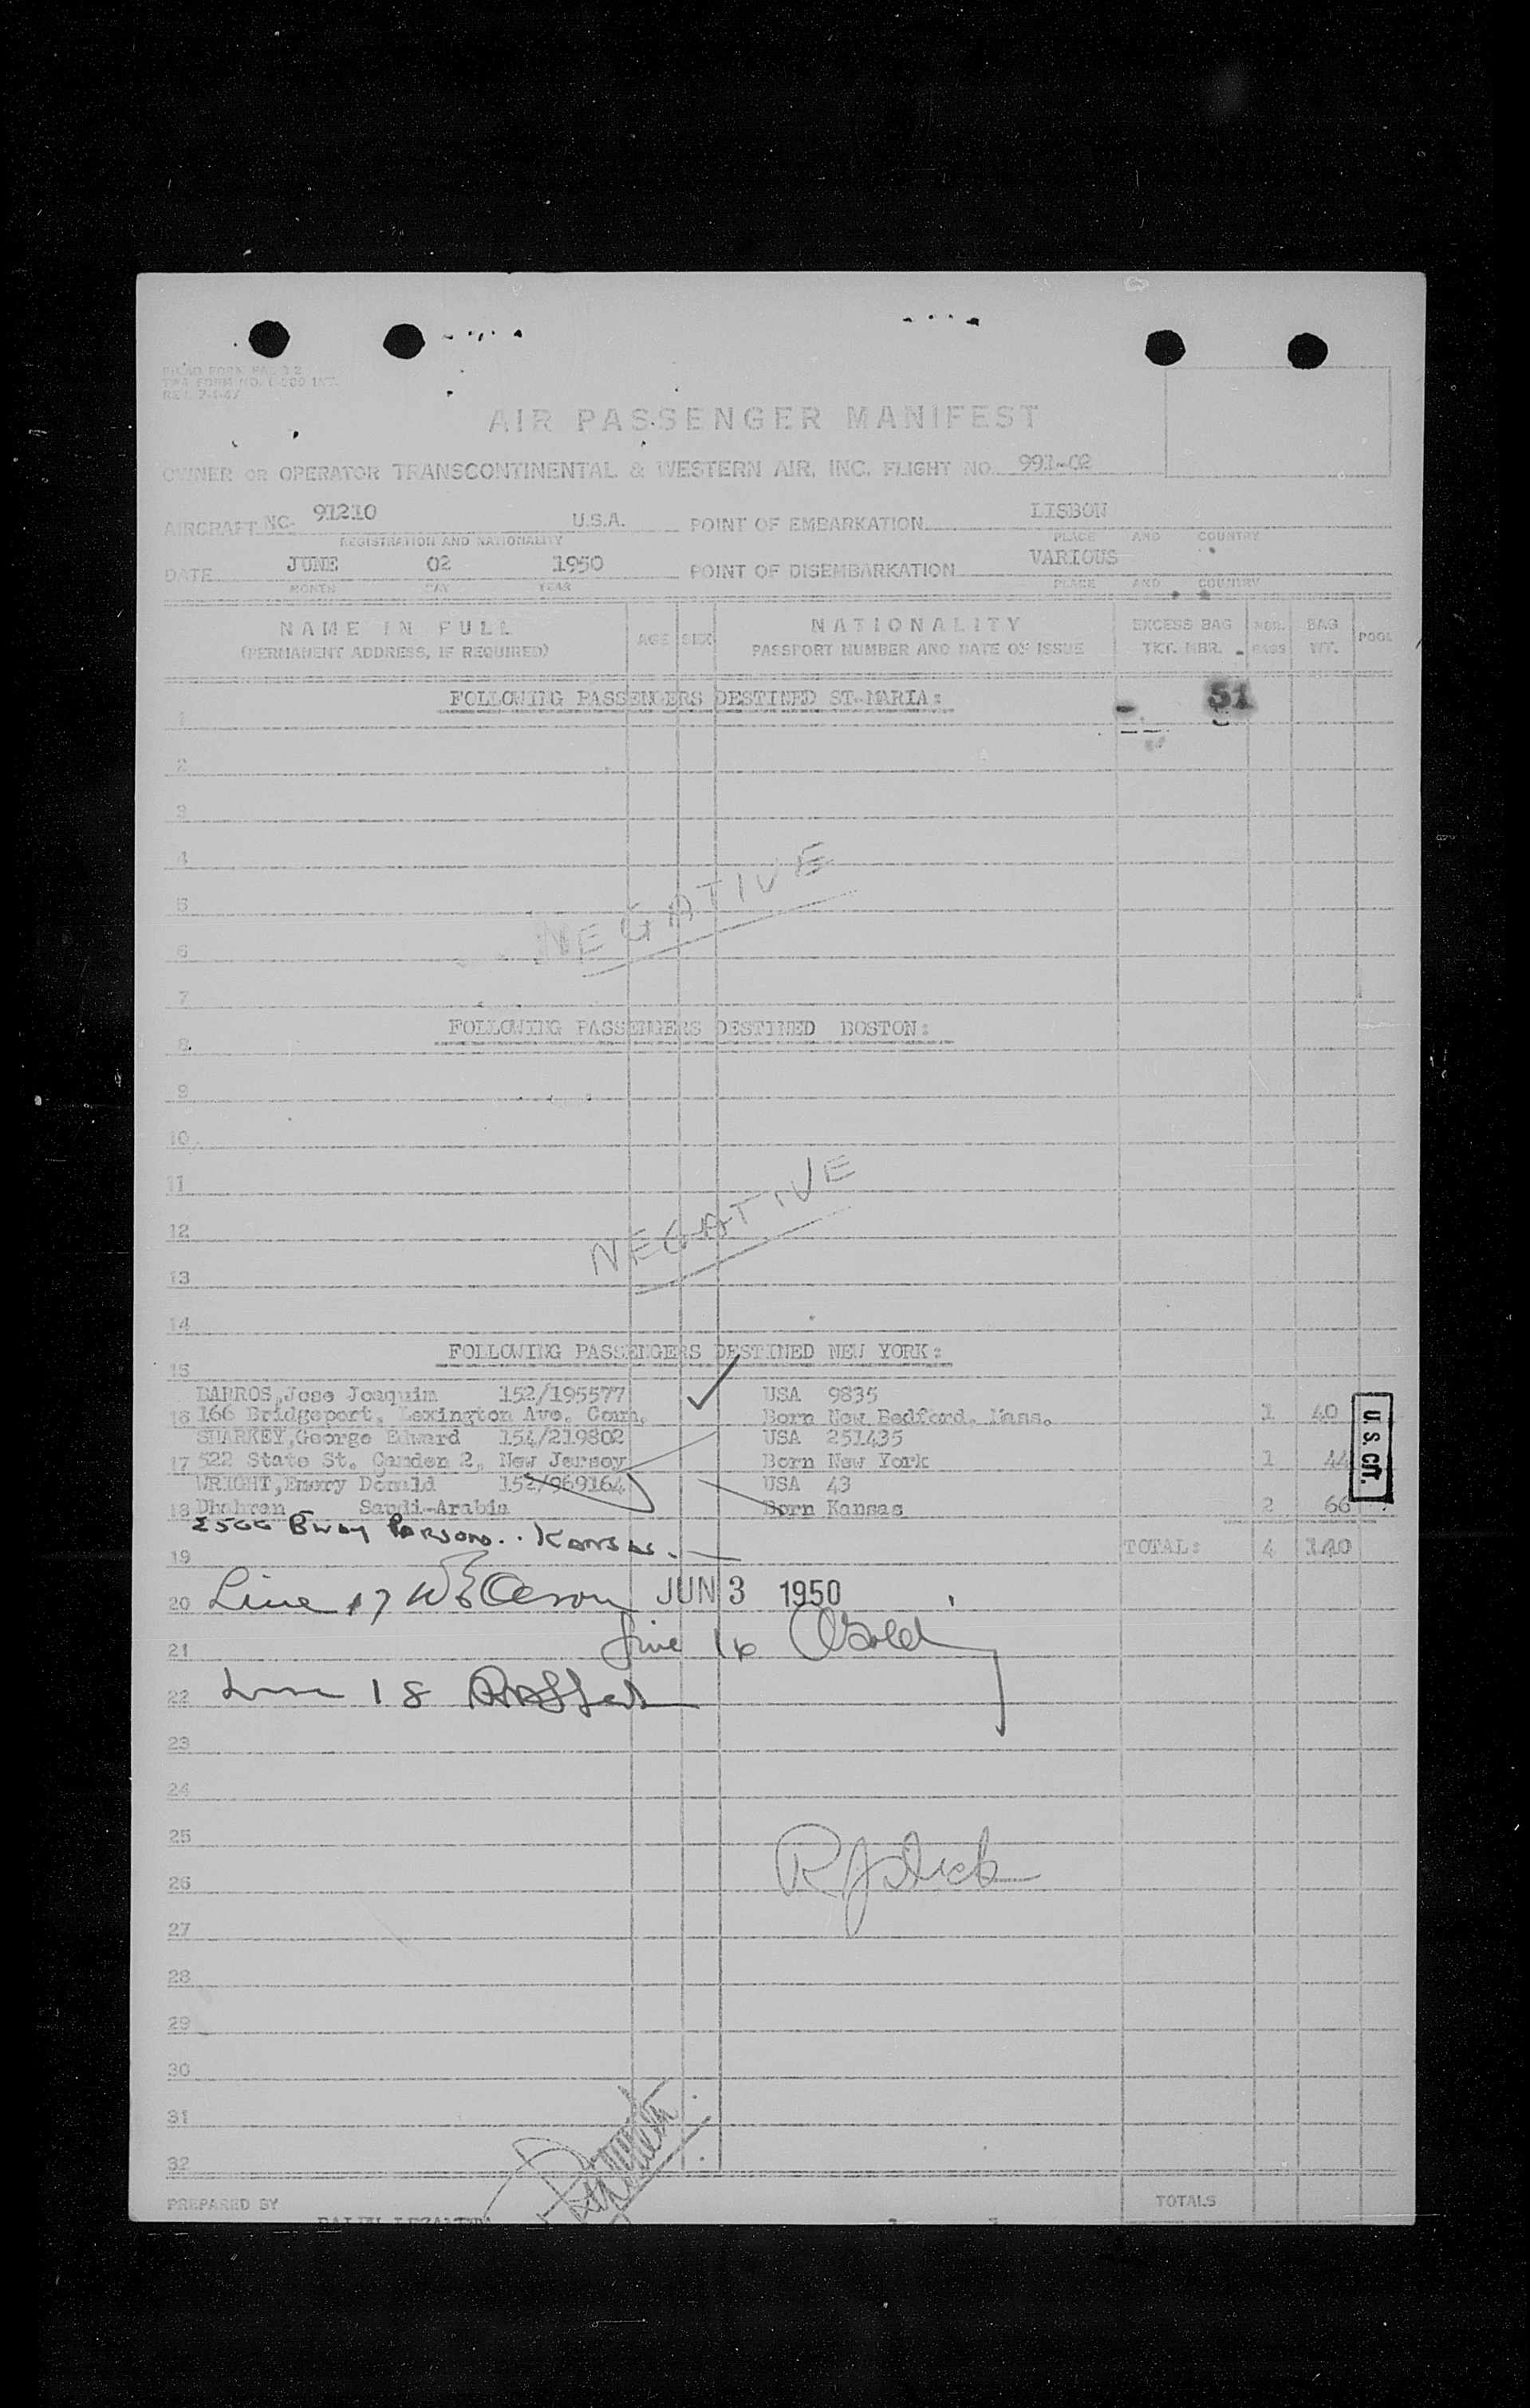 PICAO FORM PAC 3 2
TWA FORM NO. INT.
REV. 7-1-47
AIR PASSENGER MANIFEST
OWNER OR OPERATOR TRANSCONTINENTAL & WESTERN AIR, INC. FLIGHT NO. 991-02
AIRCRAFT NC- 91210 U.S.A. POINT OF EMBARKATION LISBON
REGISTRATION AND NATIONALITY PLACE AND COUNTRY
DATE JUNE 02 1950 POINT OF DISEMBARKATION VARIOUS
MONTH DAY YEAR PLACE AND COUNTRY
NAME IN FULL AGE SEX NATIONALITY EXCESS BAG NBR. BAG POOL
(PERMANENT ADDRESS, IF REQUIRED) PASSPORT NUMBER AND DATE OF ISSUE TKT. NBR. BAGS WT.
FOLLOWING PASSENGERS DESTINED ST.MARIA: 51
1
2
3
4
NEGATIVE
5
6
7
FOLLOWING PASSENGERS DESTINED BOSTON:
8
9
10
11
NEGATIVE
12
13
14
FOLLOWING PASSENGERS DESTINED NEW YORK:
15
BARROS,Jose Joaquim 152/195577 USA 9835
16 166 Bridgeport, Lexington Ave. Conn. Born New Bedford, Mass. 1 40
SHARKEY,George Edward 154/219802 USA 251435
17 522 State St. Camden 2, New Jersey Born New York 1 44
WRIGHT,Emory Donald 152/969164 USA 43
18 Dhahran Saudi-Arabia Born Kansas 2 66
U. S. Cit.
2500 Bway Parsons.. Kansas.
19 TOTAL: 4 140
20 Line 17 JUN 3 1950
21 Line 16
22 Line 18
23
24
25
26
27
28
29
30
31
32
PREPARED BY TOTALS